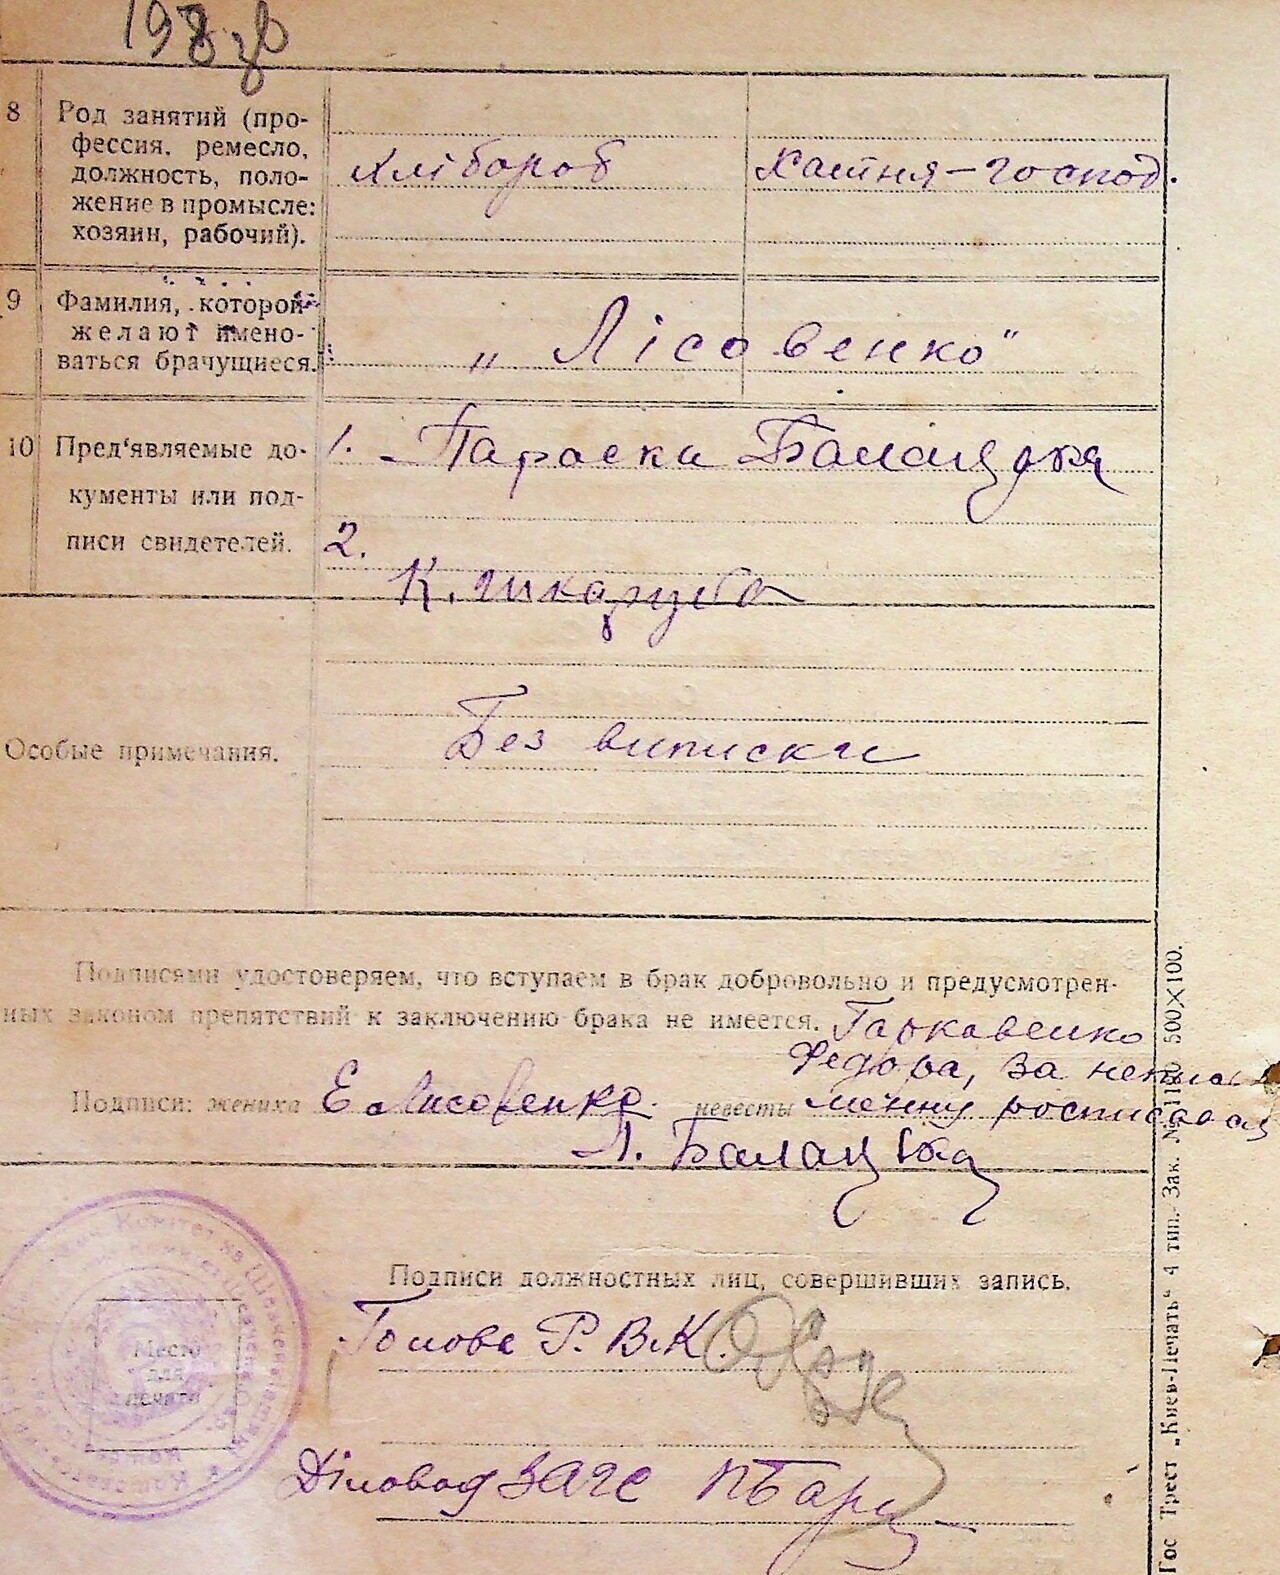 198 зв
8 Род занятий (про-
фессия, ремесло,
должность, поло-
жение в промысле:
хозяин, рабочий).
хлібороб
Хатня-господ.
9 Фамилия, которой
желают имено-
ваться брачущиеся.
„Лісовенко"
10 Пред'являемые до-
кументы или под-
писи свидетелей.
1. Параска Балацька
2.
К. Шкаруба
Особые примечания.
Без виписки
Подписями удостоверяем, что вступаем в брак добровольно и предусмотрен-
ных законом препятствий к заключению брака не имеется. Гаркавенко
Федора, за непись
Подписи: жениха Е Лисовенко невесты менну росписалась
Л. Балацька
Подписи должностных лиц, совершивших запись.
Голова Р.В.К.
Діловод ЗАГС
Место
для
печати
Гос Трест „Киев-Печать" 4 тип. Зак. 500X100.